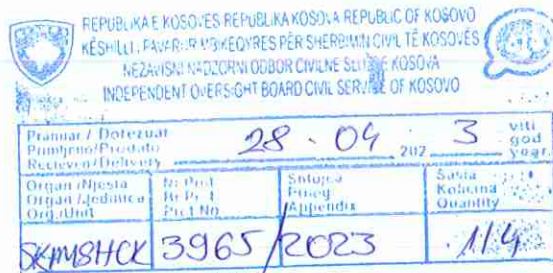 REPUBLIKA E KOSOVËS REPUBLIKA KOSOVA REPUBLIC OF KOSOVO
KËSHILLI PAVARUR MBIKËQYRËS PËR SHËRBIMIN CIVIL TË KOSOVËS
NEZAVISNI NADZORNI ODBOR CIVILNE SLUŽBE KOSOVA
INDEPENDENT OVERSIGHT BOARD CIVIL SERVICE OF KOSOVO
Pranuar / Dorëzuar
Primljeno/Prodato
Recieven/Delivery
28 - 04 202 3
viti
god
year.
Organ /Njësia
Organ /Jedinica
Org./Unit
Nr Prot
Br Prot
Prot No
Shtojca
Prilog
Appendix
Sasia
Kolicina
Quantity
3965/2023